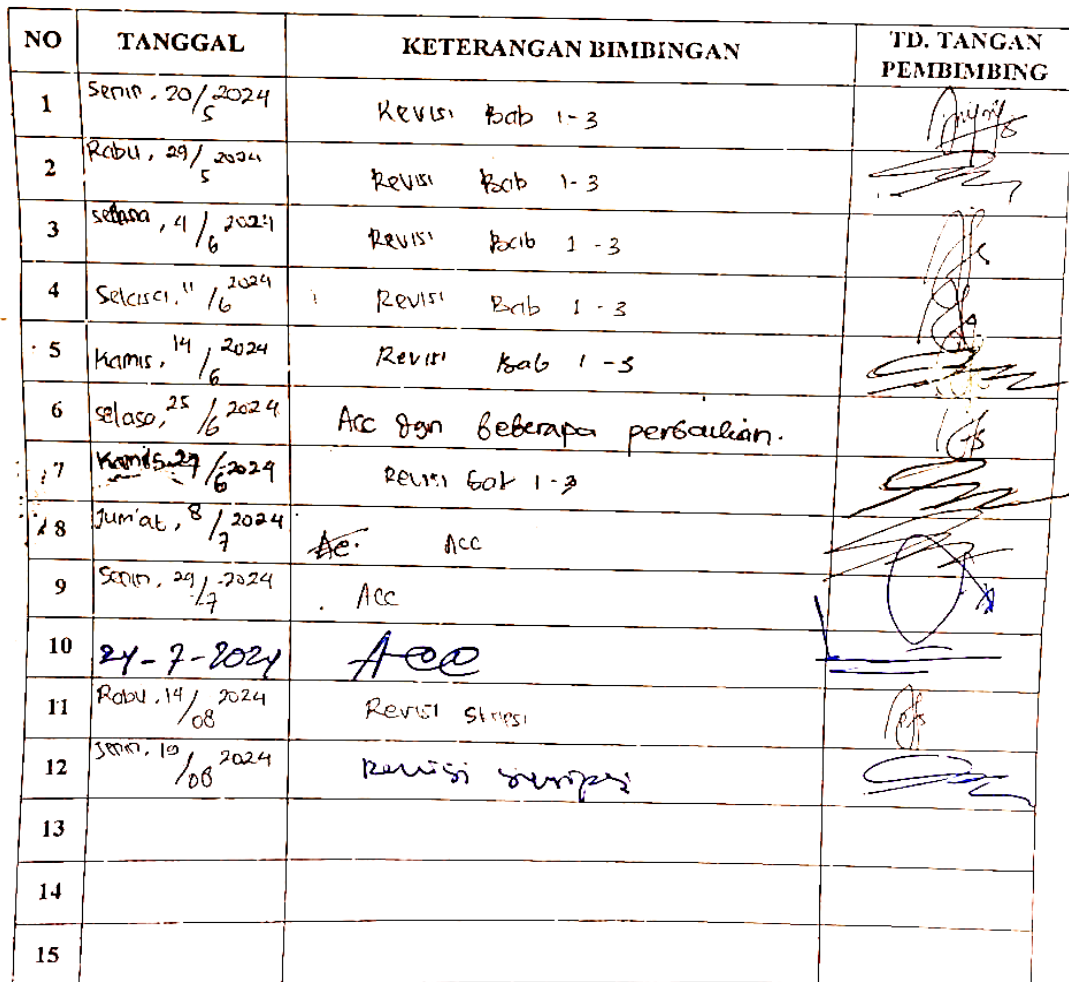 NO TANGGAL KETERANGAN BIMBINGAN TD. TANGAN PEMBIMBING
1 Senin, 20/5 2024 Revisi Bab 1-3
2 Rabu, 29/5 2024 Revisi Bab 1-3
3 selasa, 4/6 2024 Revisi Bab 1-3
4 Selasa, 11/6 2024 Revisi Bab 1-3
5 Kamis, 14/6 2024 Revisi Bab 1-3
6 selasa, 25/6 2024 Acc dgn beberapa perbaikan.
7 Kamis 27/6 2024 Revisi bab 1-3
8 Jum'at, 8/7 2024 Acc
9 Senin, 29/7 2024 Acc
10 24-7-2024 Acc
11 Rabu, 14/08 2024 Revisi Skripsi
12 Senin, 19/08 2024 Revisi skripsi
13
14
15